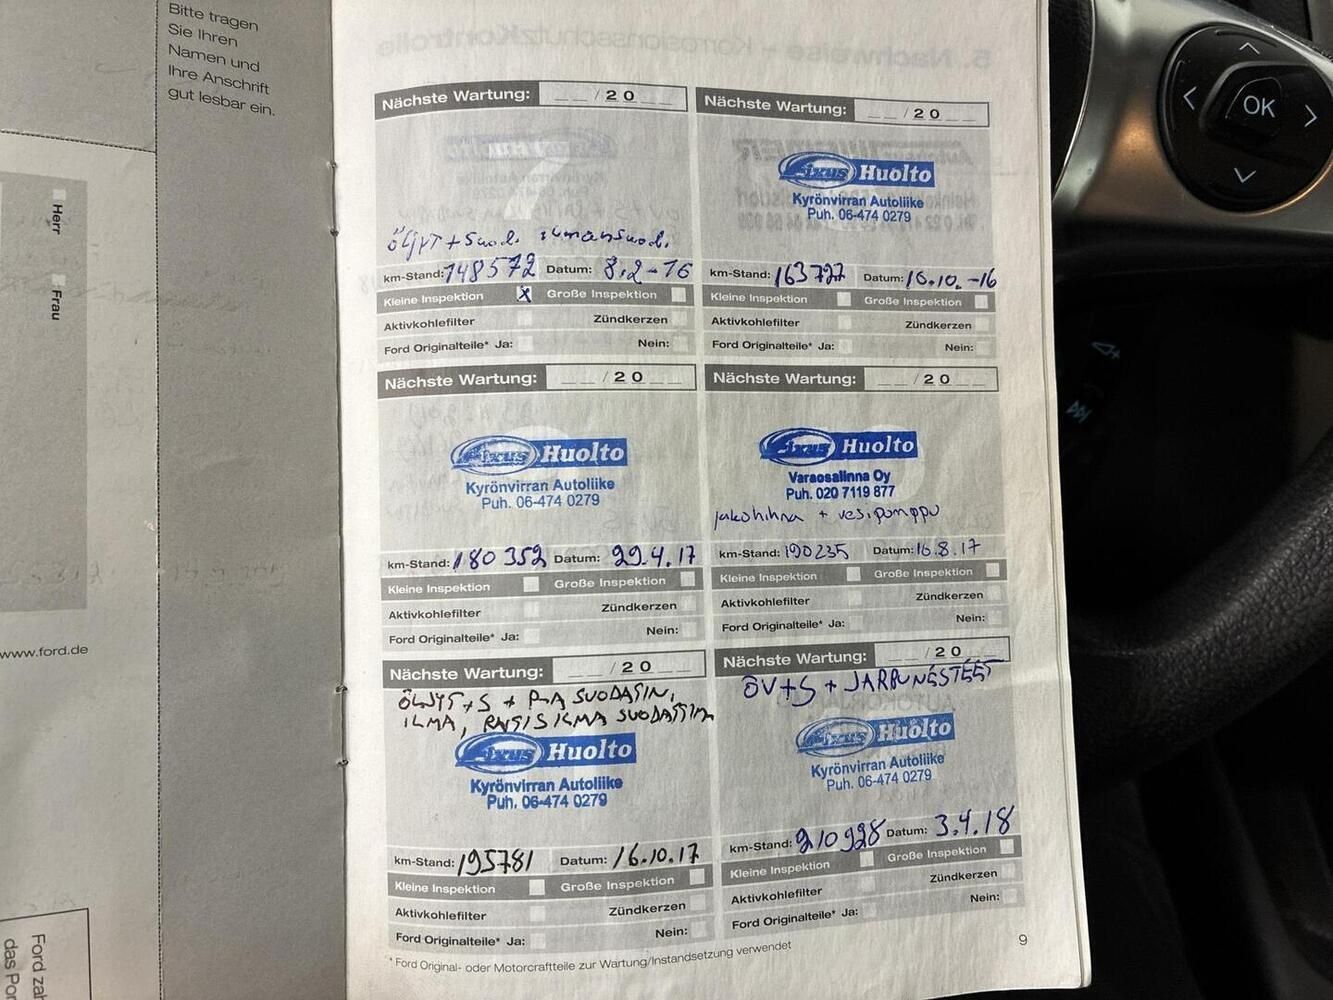 Bitte tragen
Sie Ihren
Namen und
Ihre Anschrift
gut lesbar ein.
Herr
Frau
www.ford.de
Ford zah
das Por
Nächste Wartung: __/20__
öljyt + suod. ilmansuod.
km-Stand: 148572 Datum: 8.2-16
Kleine Inspektion x Große Inspektion
Aktivkohlefilter Zündkerzen
Ford Originalteile* Ja: Nein:
Nächste Wartung: __/20__
Fixus Huolto
Kyrönvirran Autoliike
Puh. 06-474 0279
km-Stand: 163727 Datum: 10.10.-16
Kleine Inspektion Große Inspektion
Aktivkohlefilter Zündkerzen
Ford Originalteile* Ja: Nein:
Nächste Wartung: __/20__
Fixus Huolto
Kyrönvirran Autoliike
Puh. 06-474 0279
km-Stand: 180 352 Datum: 29.4.17
Kleine Inspektion Große Inspektion
Aktivkohlefilter Zündkerzen
Ford Originalteile* Ja: Nein:
Nächste Wartung: __/20__
Fixus Huolto
Varaosalinna Oy
Puh. 020 7119 877
jakohihna + vesipumppu
km-Stand: 190235 Datum: 16.8.17
Kleine Inspektion Große Inspektion
Aktivkohlefilter Zündkerzen
Ford Originalteile* Ja: Nein:
Nächste Wartung: __/20__
ÖLJYT+S + P-A SUODATIN,
ILMA, RAITISILMA SUODATTIM
Fixus Huolto
Kyrönvirran Autoliike
Puh. 06-474 0279
km-Stand: 195781 Datum: 16.10.17
Kleine Inspektion Große Inspektion
Aktivkohlefilter Zündkerzen
Ford Originalteile* Ja: Nein:
Nächste Wartung: __/20__
ÖV+S + JARRUNESTEET
Fixus Huolto
Kyrönvirran Autoliike
Puh. 06-474 0279
km-Stand: 210928 Datum: 3.4.18
Kleine Inspektion Große Inspektion
Aktivkohlefilter Zündkerzen
Ford Originalteile* Ja: Nein:
* Ford Original- oder Motorcraftteile zur Wartung/Instandsetzung verwendet
9
OK